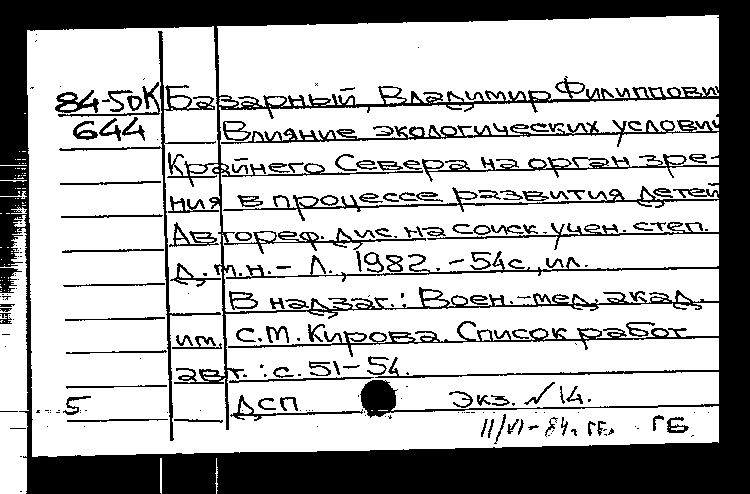 84-50К Базарный, Владимир Филиппови
644 Влияние экологических условий
Крайнего Севера на орган зре-
ния в процессе развития детей
Автореф. дис. на соиск. учен. степ.
д.м.н. - Л., 1982. - 54с., ил.
В надзаг.: Воен.-мед. акад.
им. С.М. Кирова. Список работ
авт.: с. 51-54.
5 ДСП Экз. N 14.
11/VI-84г. ГБ. ГБ